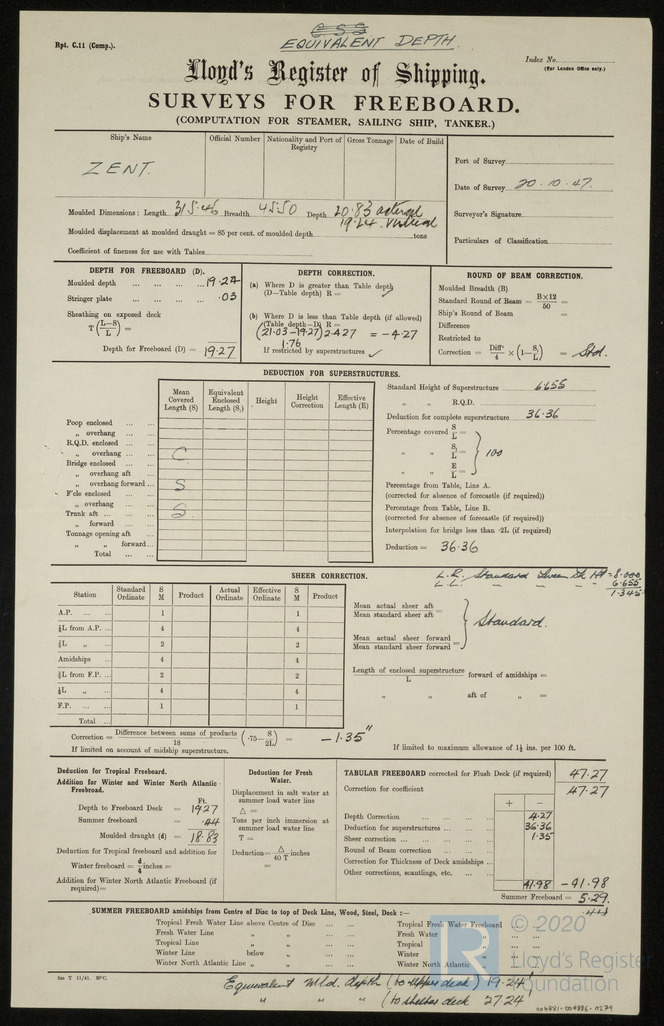 Rpt. C.11 (Comp.).
EQUIVALENT DEPTH.
Index No.
(For London Office only.)
Lloyd's Register of Shipping.
SURVEYS FOR FREEBOARD.
(COMPUTATION FOR STEAMER, SAILING SHIP, TANKER.)
Ship's Name Official Number Nationality and Port of Registry Gross Tonnage Date of Build
ZENT.
Port of Survey
Date of Survey 20.10.47.
Surveyor's Signature
Particulars of Classification
Moulded Dimensions: Length 315.46 Breadth 45.50 Depth 20.83 actual
19.24 virtual
Moulded displacement at moulded draught = 85 per cent. of moulded depth tons
Coefficient of fineness for use with Tables
DEPTH FOR FREEBOARD (D).
Moulded depth ... ... ... ... 19.24
Stringer plate ... ... ... .03
Sheathing on exposed deck
T (L-S/L) =
Depth for Freeboard (D) = 19.27
DEPTH CORRECTION.
(a) Where D is greater than Table depth
(D—Table depth) R =
(b) Where D is less than Table depth (if allowed)
(Table depth—D) R =
(21.03-19.27) 2.427 = -4.27
1.76
If restricted by superstructures ✓
ROUND OF BEAM CORRECTION.
Moulded Breadth (B)
Standard Round of Beam = B×12/50 =
Ship's Round of Beam =
Difference
Restricted to
Correction = Diffce/4 × (1- S₁/L) = Std.
DEDUCTION FOR SUPERSTRUCTURES.
Mean Covered Length (S) Equivalent Enclosed Length (S₁) Height Height Correction Effective Length (E)
Poop enclosed ... ...
„ overhang ... ...
R.Q.D. enclosed ... ...
„ overhang ... ... C
Bridge enclosed ... ...
„ overhang aft ...
„ overhang forward ... S
F'cle enclosed ... ...
„ overhang ... ...
Trunk aft ... ... ... S
„ forward ... ...
Tonnage opening aft ...
„ „ forward ...
Total ... ...
Standard Height of Superstructure 6.655
„ „ R.Q.D.
Deduction for complete superstructure 36.36
Percentage covered S/L =
„ „ S₁/L = 100
„ „ E/L =
Percentage from Table, Line A.
(corrected for absence of forecastle (if required))
Percentage from Table, Line B.
(corrected for absence of forecastle (if required))
Interpolation for bridge less than ·2L (if required)
Deduction = 36.36
SHEER CORRECTION.
= 8.000
6.655
1.345
Station Standard Ordinate S M Product Actual Ordinate Effective Ordinate S M Product
A.P. ... ... 1 1
⅙L from A.P. ... 4 4
⅓L „ ... 2 2
Amidships ... 4 4
⅓L from F.P. ... 2 2
⅙L „ ... 4 4
F.P. ... ... 1 1
Total ...
Mean actual sheer aft
Mean standard sheer aft =
Mean actual sheer forward
Mean standard sheer forward =
Standard.
Length of enclosed superstructure/L forward of amidships =
„ „ aft of „ =
Correction = Difference between sums of products/18 (·75- S/2L) = -1.35"
If limited on account of midship superstructure.
If limited to maximum allowance of 1½ ins. per 100 ft.
Deduction for Tropical Freeboard.
Addition for Winter and Winter North Atlantic Freeboard.
Ft.
Depth to Freeboard Deck = 19.27
Summer freeboard = .44
Moulded draught (d) = 18.83
Deduction for Tropical freeboard and addition for
Winter freeboard = d/4 inches =
Addition for Winter North Atlantic Freeboard (if required) =
Deduction for Fresh Water.
Displacement in salt water at summer load water line
Δ =
Tons per inch immersion at summer load water line
T =
Deduction = Δ/40 T inches
=
TABULAR FREEBOARD corrected for Flush Deck (if required) 47.27
Correction for coefficient 47.27
+ -
Depth Correction ... ... ... 4.27
Deduction for superstructures ... ... 36.36
Sheer correction ... ... ... 1.35
Round of Beam correction ... ...
Correction for Thickness of Deck amidships ...
Other corrections, scantlings, etc. ... ...
41.98 -41.98
Summer Freeboard = 5.29.
.44
SUMMER FREEBOARD amidships from Centre of Disc to top of Deck Line, Wood, Steel, Deck :—
Tropical Fresh Water Line above Centre of Disc ... ... Tropical Fresh Water Freeboard
Fresh Water Line „ „ ... ... Fresh Water „
Tropical Line „ „ ... ... Tropical „
Winter Line below „ ... ... Winter „
Winter North Atlantic Line „ „ ... ... Winter North Atlantic „
5m T 11/41. MᶜC.
Equivalent Mld. depth (to upper deck) 19.24'
„ „ „ (to shelter deck 27.24
© 2020
Lloyd's Register
Foundation
004881-004896-0279